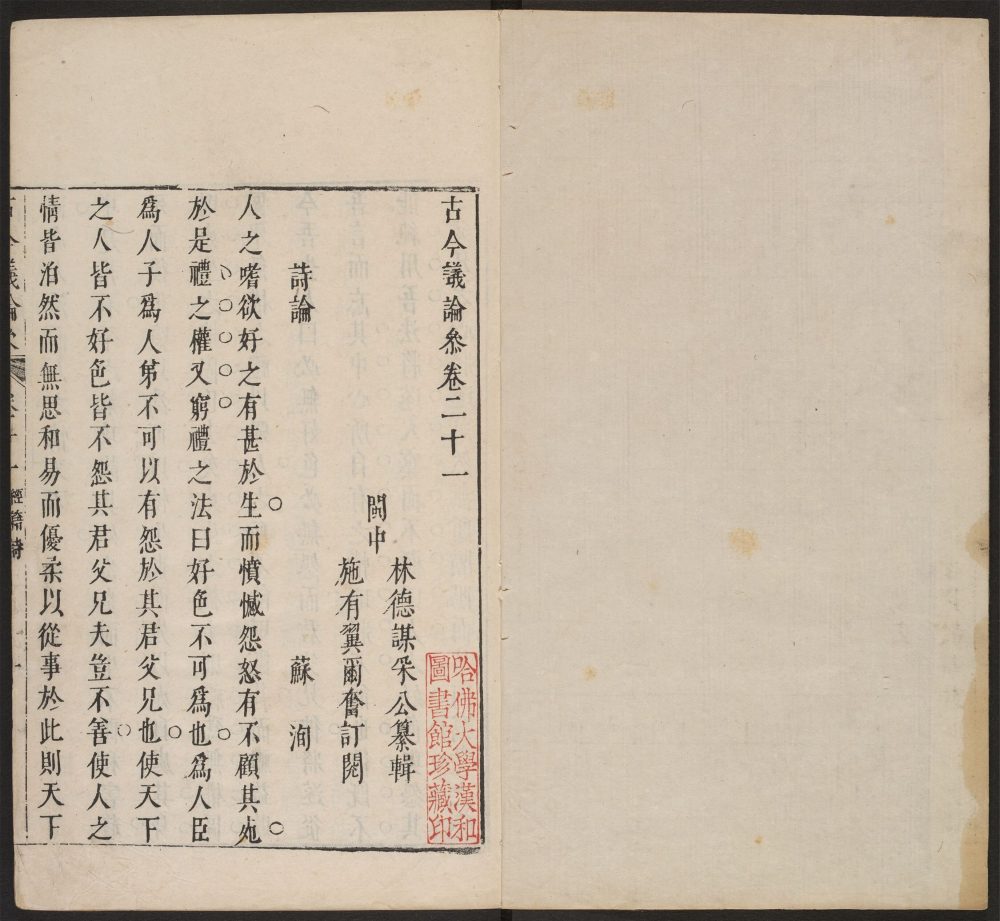 古今議論叅卷二十一
閩中
林德謀采公纂輯
施有翼爾奮訂閱
哈佛大學漢和
圖書館珍藏印
詩論 蘇洵
人之嗜欲好之有甚於生而憤憾怨怒有不顧其死
於是禮之權又窮禮之法曰好色不可爲也爲人臣
爲人子爲人弟不可以有怨於其君父兄也使天下
之人皆不好色皆不怨其君父兄夫豈不善使人之
情皆泊然而無思和易而優柔以從事於此則天下
古今議論叅 卷二十一 經籍 詩 一